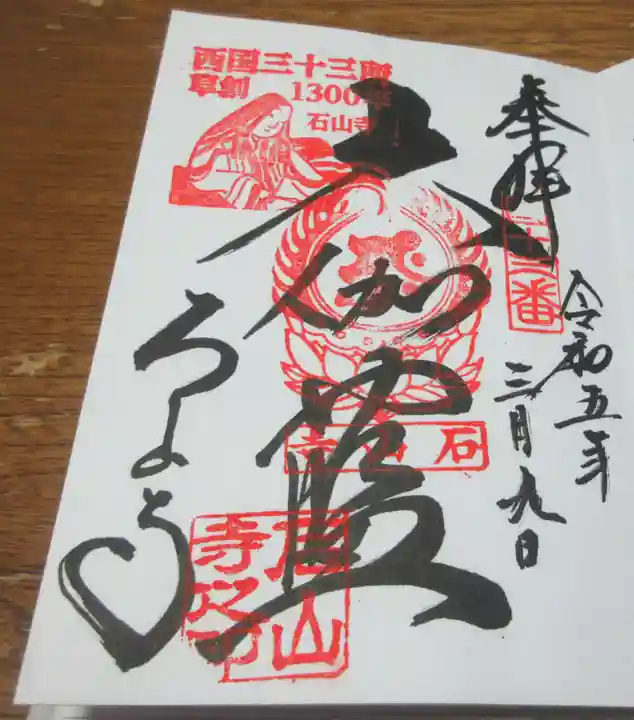 奉拝
十三番
令和五年
三月九日
大伽藍
石山寺
西国三十三所
草創 1300年
石山寺
石山寺
石山寺之印